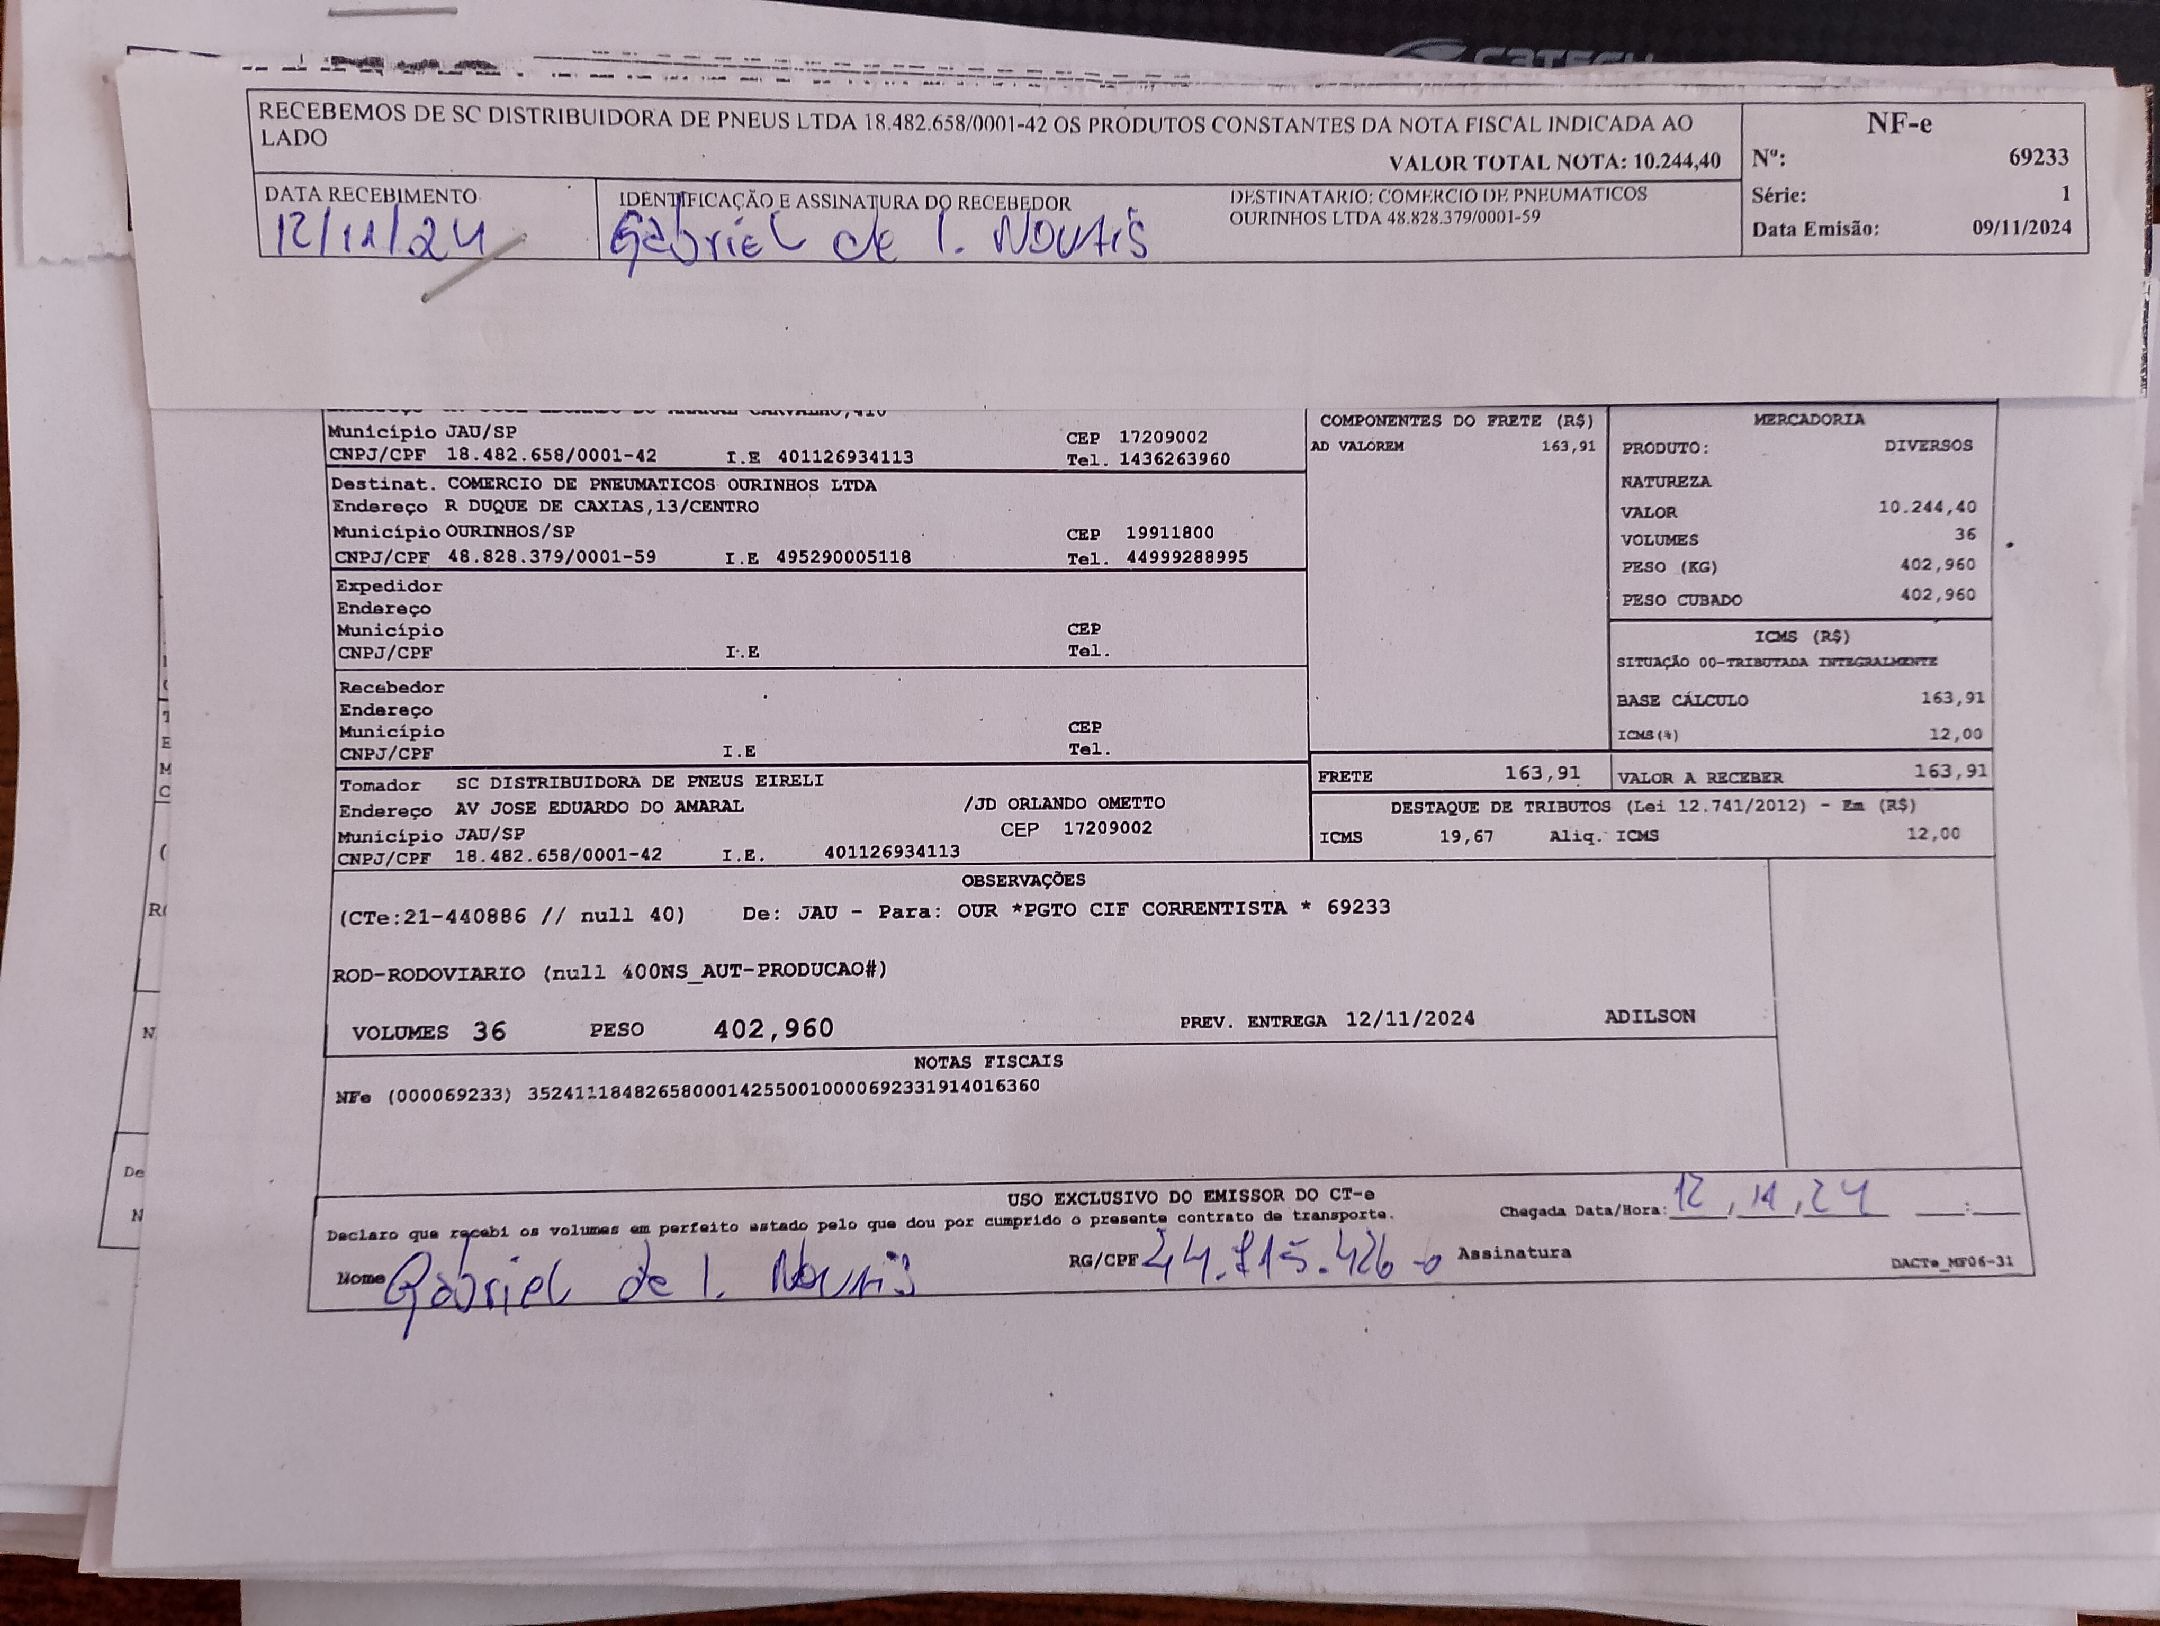 RECEBEMOS DE SC DISTRIBUIDORA DE PNEUS LTDA 18.482.658/0001-42 OS PRODUTOS CONSTANTES DA NOTA FISCAL INDICADA AO
LADO
VALOR TOTAL NOTA: 10.244,40
NF-e
Nº: 69233
Série: 1
Data Emisão: 09/11/2024
DATA RECEBIMENTO
12/11/24
IDENTIFICAÇÃO E ASSINATURA DO RECEBEDOR
Gabriel de
DESTINATARIO: COMERCIO DE PNEUMATICOS
OURINHOS LTDA 48.828.379/0001-59
Município JAU/SP CEP 17209002
CNPJ/CPF 18.482.658/0001-42 I.E 401126934113 Tel. 1436263960
Destinat. COMERCIO DE PNEUMATICOS OURINHOS LTDA
Endereço R DUQUE DE CAXIAS,13/CENTRO
Município OURINHOS/SP CEP 19911800
CNPJ/CPF 48.828.379/0001-59 I.E 495290005118 Tel. 44999288995
Expedidor
Endereço
Município CEP
CNPJ/CPF I.E Tel.
Recebedor
Endereço
Município CEP
CNPJ/CPF I.E Tel.
Tomador SC DISTRIBUIDORA DE PNEUS EIRELI
Endereço AV JOSE EDUARDO DO AMARAL /JD ORLANDO OMETTO
Município JAU/SP CEP 17209002
CNPJ/CPF 18.482.658/0001-42 I.E. 401126934113
COMPONENTES DO FRETE (R$)
AD VALOREM 163,91
MERCADORIA
PRODUTO: DIVERSOS
NATUREZA
VALOR 10.244,40
VOLUMES 36
PESO (KG) 402,960
PESO CUBADO 402,960
ICMS (R$)
SITUAÇÃO 00-TRIBUTADA INTEGRALMENTE
BASE CÁLCULO 163,91
ICMS(%) 12,00
FRETE 163,91 VALOR A RECEBER 163,91
DESTAQUE DE TRIBUTOS (Lei 12.741/2012) - Em (R$)
ICMS 19,67 Aliq. ICMS 12,00
OBSERVAÇÕES
(CTe:21-440886 // null 40) De: JAU - Para: OUR *PGTO CIF CORRENTISTA * 69233
ROD-RODOVIARIO (null 400NS_AUT-PRODUCAO#)
VOLUMES 36 PESO 402,960 PREV. ENTREGA 12/11/2024 ADILSON
NOTAS FISCAIS
NFe (000069233) 35241118482658000142550010000692331914016360
USO EXCLUSIVO DO EMISSOR DO CT-e
Declaro que recebi os volumes em perfeito estado pelo que dou por cumprido o presente contrato de transporte.
Chegada Data/Hora: 12, 11, 24 :
Nome Gabriel de
RG/CPF
Assinatura
DACTe_MF06-31